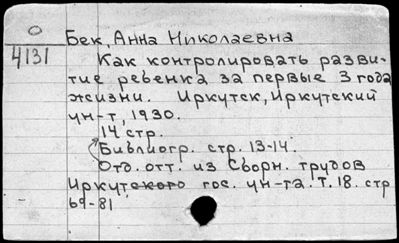 О
Бек, Анна Николаевна
4131
Как контролировать разви-
тие ребенка за первые 3 года
жизни. Иркутск, Иркутский
ун-т, 1930.
14 стр.
Библиогр. стр. 13-14.
Отд. отт. из Сборн. трудов
Иркутского гос. ун-та. Т. 18. стр
69-81